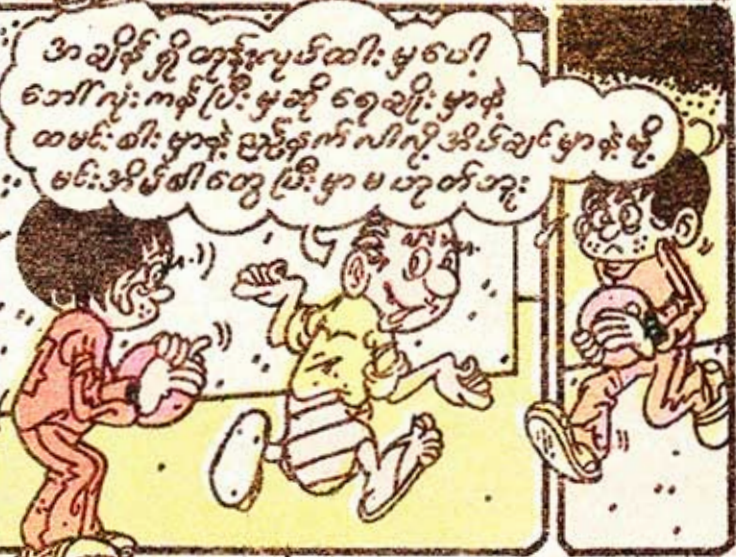 အချိန်ရှိတုန်းလုပ်ထားမှပေါ့
ဘော်လုံးကန်ပြီးမှဆို ရေချိုးမှာနဲ့
ထမင်းစားမှာနဲ့ ညည်းနက်လာလို့အိပ်ချင်မှာနဲ့မို့
မင်းအိမ်စာတွေပြီးမှာမဟုတ်ဘူး